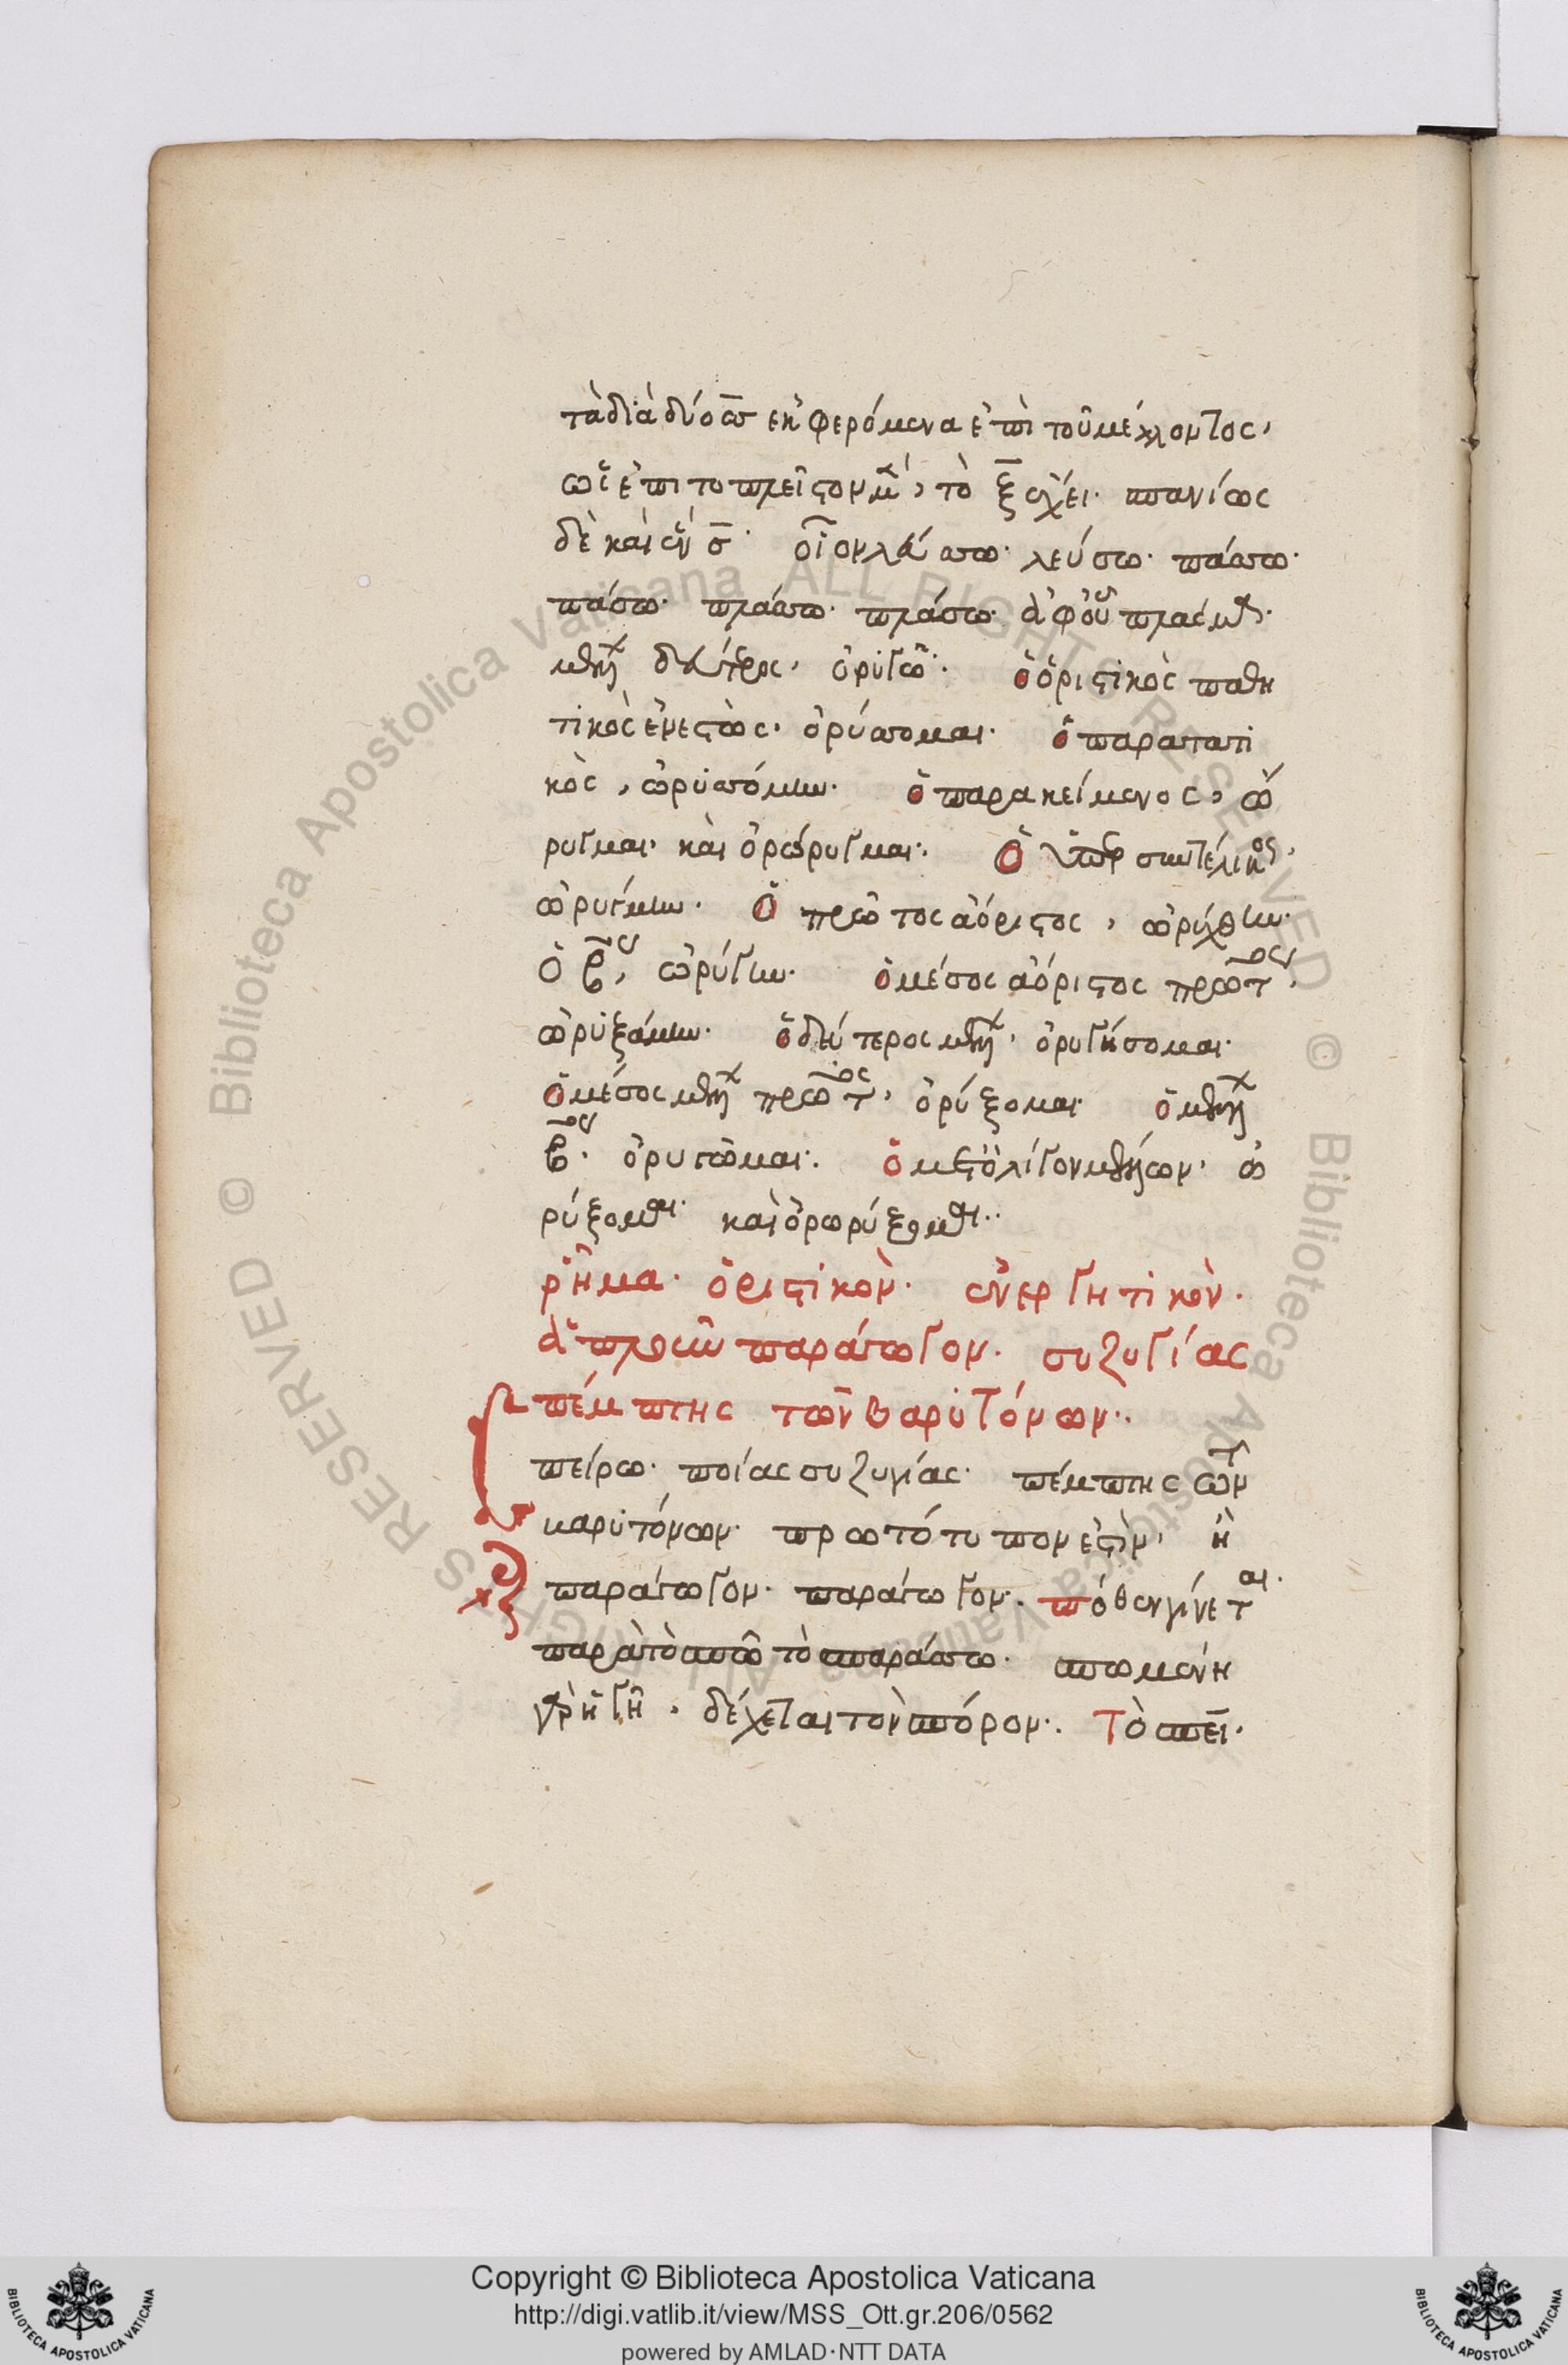 τὰ διὰ δύο σσ ἐκφερόμενα ἐπὶ τοῦ μέλλοντος,
ὡς ἐπιτοπλεῖστον, τὸ ξ ἔχει. σπανίως
δὲ καὶ ἓν σ. οἷον λεύσσω. λεύσω. πάσσω.
πάσω. πλάσσω. πλάσω. ἀφοῦ
δεύτερος, ὀρυγῶ. ὁ ὁριστικὸς παθη
τικὸς ἐνεστὼς. ὀρύσσομαι. ὁ παρατατι
κὸς, ὠρυσσόμην. ὁ παρακείμενος, ὤ
ρυγμαι. καὶ ὀρώρυγμαι. Ὁ ὑπερσυντέλικος,
ὠρύγμην. Ὁ πρῶτος ἀόριστος, ὠρύχθην.
Ὁ βος, ὠρύγην. ὁ μέσος ἀόριστος πρῶτος,
ὠρυξάμην. ὁ δεύτερος μλλ, ὀρυγήσομαι.
ὁ μέσος μλλ πρῶτος, ὀρύξομαι ὁ μλλ
βος. ὀρυγῶμαι. ὁ μετ' ὀλίγον μέλλων. ὠ
ρύξομαι. καὶ ὀρωρύξομαι.
ῥῆμα. ὁριστικὸν. ἐνεργητικὸν.
ἁπλοῦν παράγωγον. συζυγίας
πέμπτης τῶν βαρυτόνων.
σπείρω. ποίας συζυγίας. πέμπτης τῶν
βαρυτόνων. πρωτότυπον ἐστὶν, ἢ
παράγωγον. παράγωγον. πόθεν γίνεται.
παρὰ τὸ σπῶ τὸ σπαράσσω. σπωμένη
γὰρ ἡ γῆ, δέχεται τὸν σπόρον. Τὸ σπει.
Copyright © Biblioteca Apostolica Vaticana
http://digi.vatlib.it/view/MSS_Ott.gr.206/0562
powered by AMLAD·NTT DATA